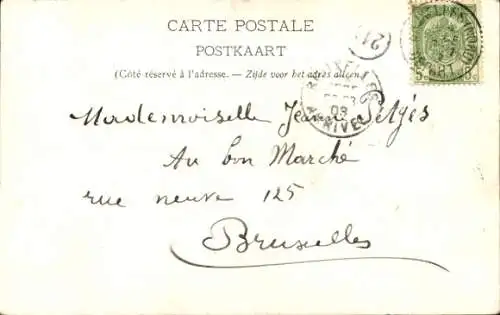 CARTE POSTALE
POSTKAART
(Côté réservé à l'adresse. — Zijde voor het adres alleen.)
21
BRUXELLES
ARRIVEE
Mademoiselle Jeanne
Au bon Marché
rue neuve 125
Bruxelles